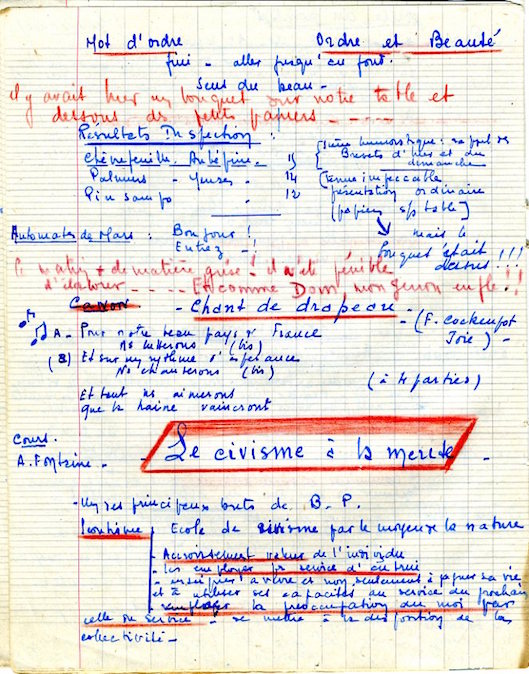 Mot d'ordre    Ordre et Beauté
fini - aller jusqu'au fond.
Sens du beau -
il y avait hier un bouquet sur notre table et
dessous des petits papiers - - - - -
Résultats Inspection :
Chèvrefeuille. Aubépine - 15
Palmiers - Yeuses - 14
Pin sampo 12
Brevets d'ânes et du
dimanche
tenue impeccable
présentation ordinaire
(papiers s/s table)
mais le
bouquet était
dessus !!!
Automates de Mars : Bonjour !
Entrez - !
Ce matin + de matière grise ! il m'est pénible
d'élaborer - - - - Et comme Dom, mon genou enfle !!
Canon - Chant de drapeau -
A - Pour notre beau pays de France
Ns lutterons (bis)
- (F. Cockenpot
Joie) -
(B) Et sur un rythme d'espérance
Ns chanterons (bis)
(à 4 parties)
Et tout ns aimerons
que la haine vaincront
Cours.
A. Fontaine -
Le civisme à la meute -
- Un des principaux buts de B. P.
Scoutisme Ecole de civisme par le moyen de la nature
- Accroissement valeur de l'individu
- Les employer pr service d'autrui
vivre et non seulement à gagner sa vie
et à utiliser ses capacités au service du prochain
remplacer la préoccupation du moi par
celle du service - se mettre à la disposition de la
collectivité -